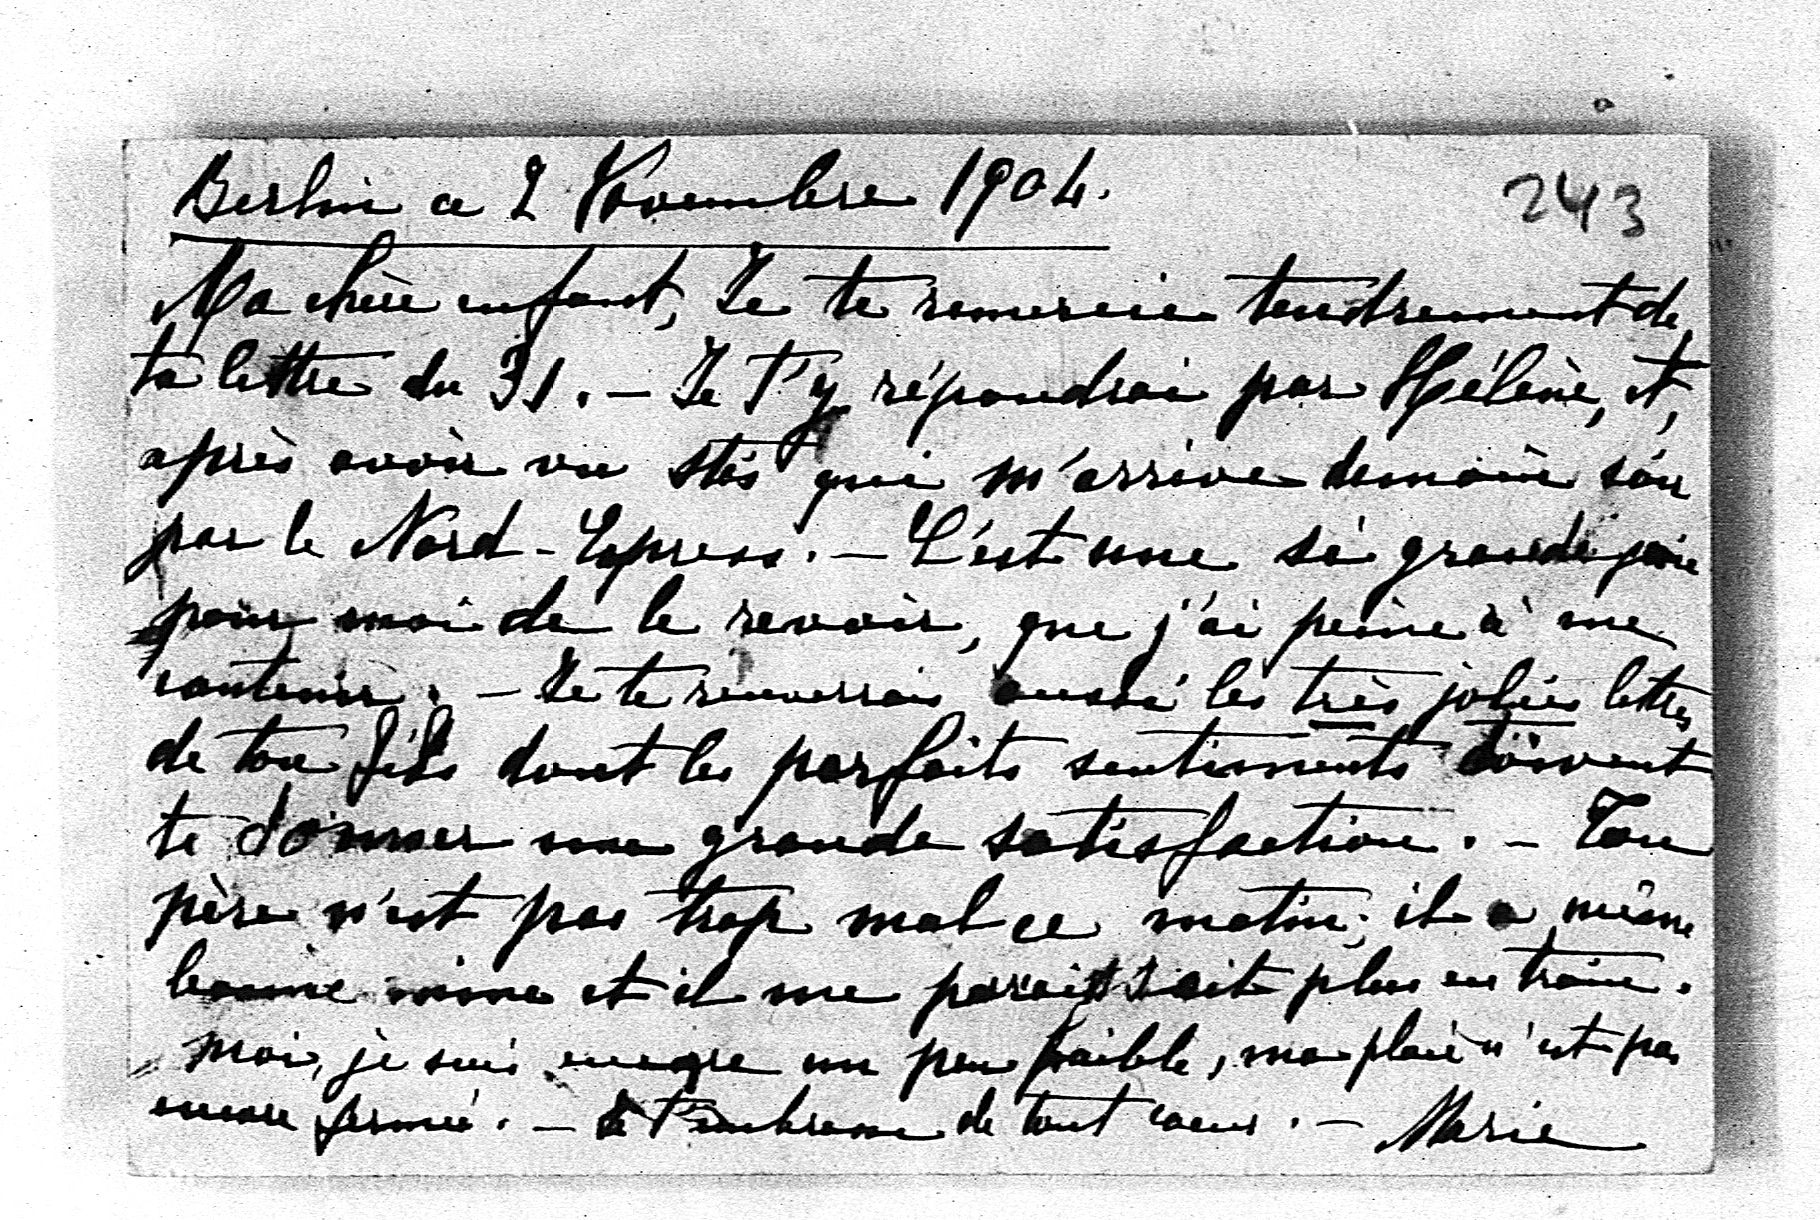 Berlin ce 2 Novembre 1904.
243
Ma chère enfant, Je te remercie tendrement de
ta lettre du 31. – Je t'y répondrai par Hélène, et,
après avoir vu Stas qui m'arrive demain soir
par le Nord-Express. – C'est une si grande joie
pour moi de le revoir, que j'ai peine à me
contenir. – Je te renverrai aussi les très jolies lettres
de ton fils dont les parfaits sentiments doivent
te donner une grande satisfaction. – Ton
père n'est pas trop mal ce matin; il a même
bonne mine et il me paraissait plus en train.
Moi, je suis encore un peu faible, ma plaie n'est pas
encore fermée. – Je t'embrasse de tout coeur. – Marie